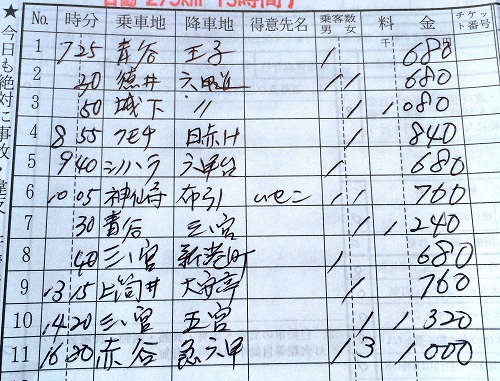 自動 275km 15時間
No. 時分 乗車地 降車地 得意先名 乗客数 男 女 料 金 チケット番号
千 円
1 7 25 青谷 王子 1 680
2 30 徳井 六甲道 1 1 680
3 50 城下 〃 1 1 080
4 8 55 日赤 1 1 840
5 9 40 シノハラ 六甲台 1 680
6 10 05 神仙寺 布引 1 760
7 30 青谷 三宮 1 1 240
8 40 三宮 新港町 1 680
9 13 15 上筒井 大安亭 1 760
10 14 20 三宮 五宮 1 1 320
11 16 30 赤谷 急六甲 1 3 1 000
★今日も絶対に事故・違